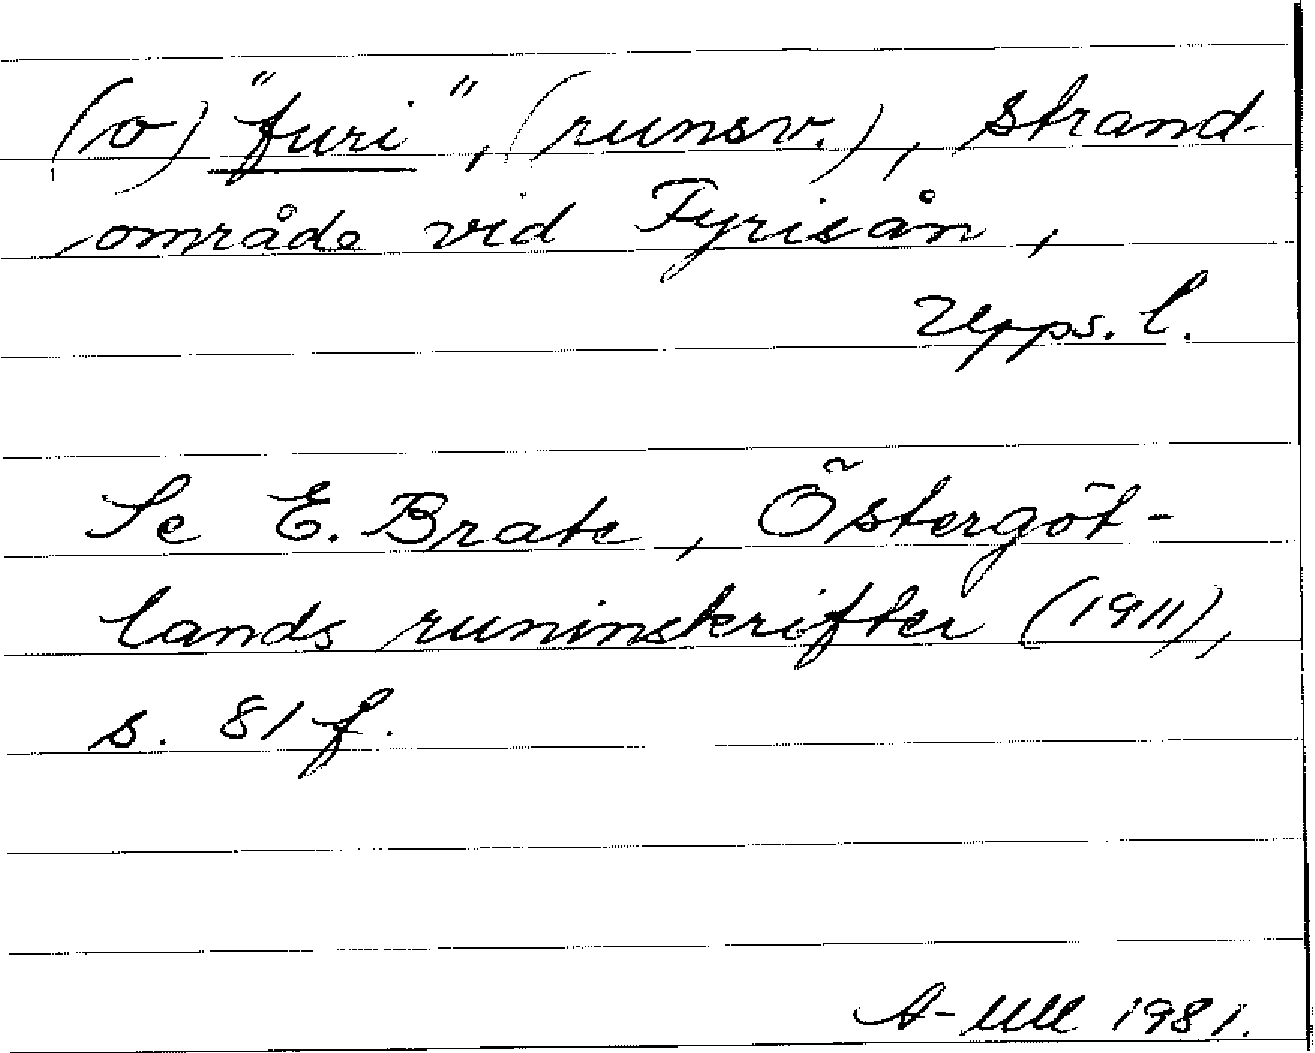 (o) "furi", (runsv.), strand-
område vid Fyrisån,
Upps. l.
Se E. Brate, Östergöt-
lands runinskrifter (1911),
s. 81 f.
A-MM 1981.